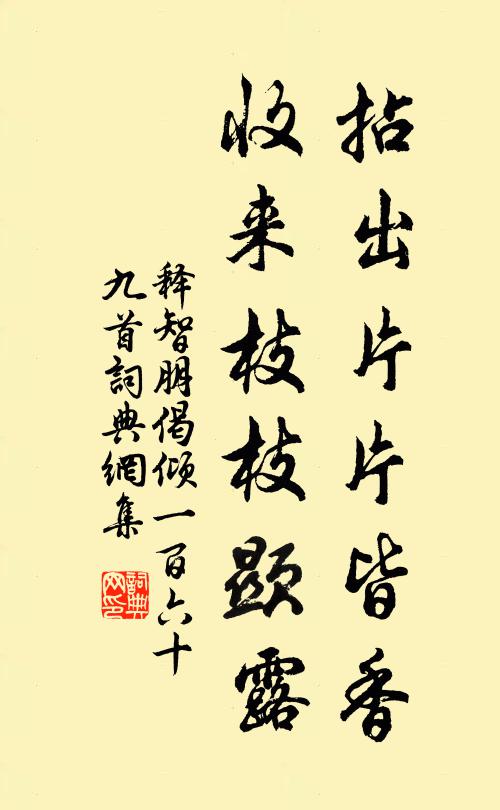 拈出片片皆香
收来枝枝显露
释智朋偈倾一百六十
九首詞典網集
詞典
网印